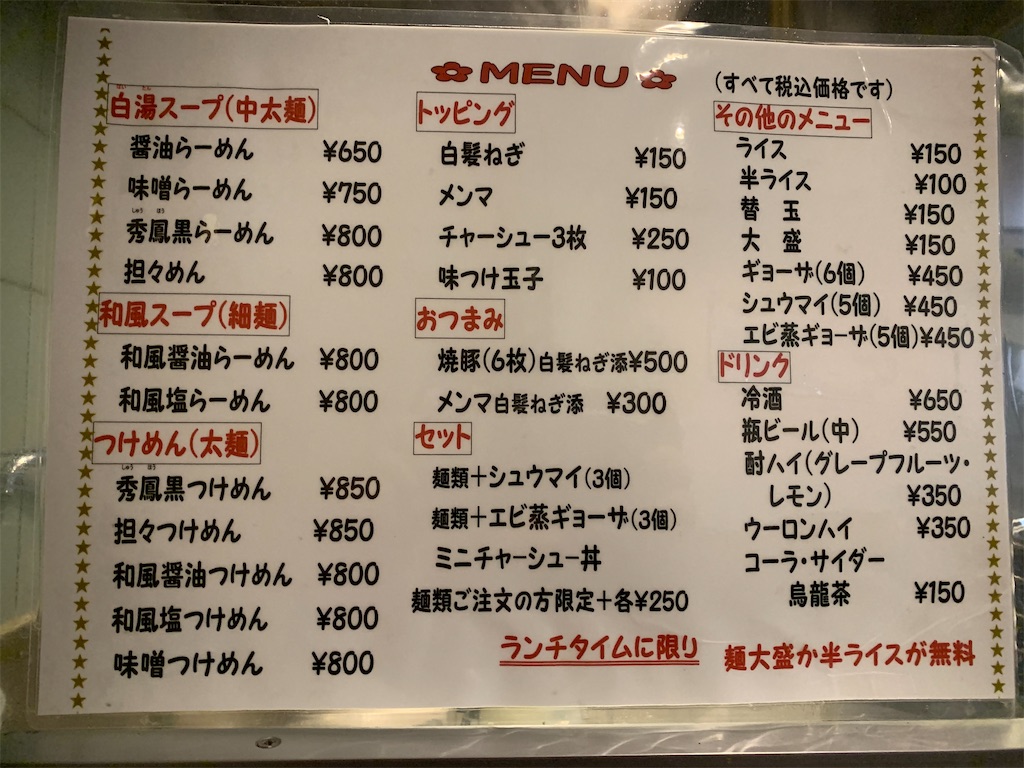 MENU
(すべて税込価格です)
白湯スープ(中太麺)
ぱい たん
醤油らーめん ¥650
味噌らーめん ¥750
しゅう ほう
秀鳳黒らーめん ¥800
担々めん ¥800
和風スープ(細麺)
和風醤油らーめん ¥800
和風塩らーめん ¥800
つけめん(太麺)
しゅう ほう
秀鳳黒つけめん ¥850
担々つけめん ¥850
和風醤油つけめん ¥800
和風塩つけめん ¥800
味噌つけめん ¥800
トッピング
白髪ねぎ ¥150
メンマ ¥150
チャーシュー3枚 ¥250
味つけ玉子 ¥100
おつまみ
焼豚(6枚)白髪ねぎ添¥500
メンマ白髪ねぎ添 ¥300
セット
麺類+シュウマイ(3個)
麺類+エビ蒸ギョーザ(3個)
ミニチャーシュー丼
麺類ご注文の方限定+各¥250
その他のメニュー
ライス ¥150
半ライス ¥100
替 玉 ¥150
大 盛 ¥150
ギョーザ(6個) ¥450
シュウマイ(5個) ¥450
エビ蒸ギョーザ(5個)¥450
ドリンク
冷酒 ¥650
瓶ビール(中) ¥550
酎ハイ(グレープフルーツ・
レモン) ¥350
ウーロンハイ ¥350
コーラ・サイダー
烏龍茶 ¥150
ランチタイムに限り 麺大盛か半ライスが無料